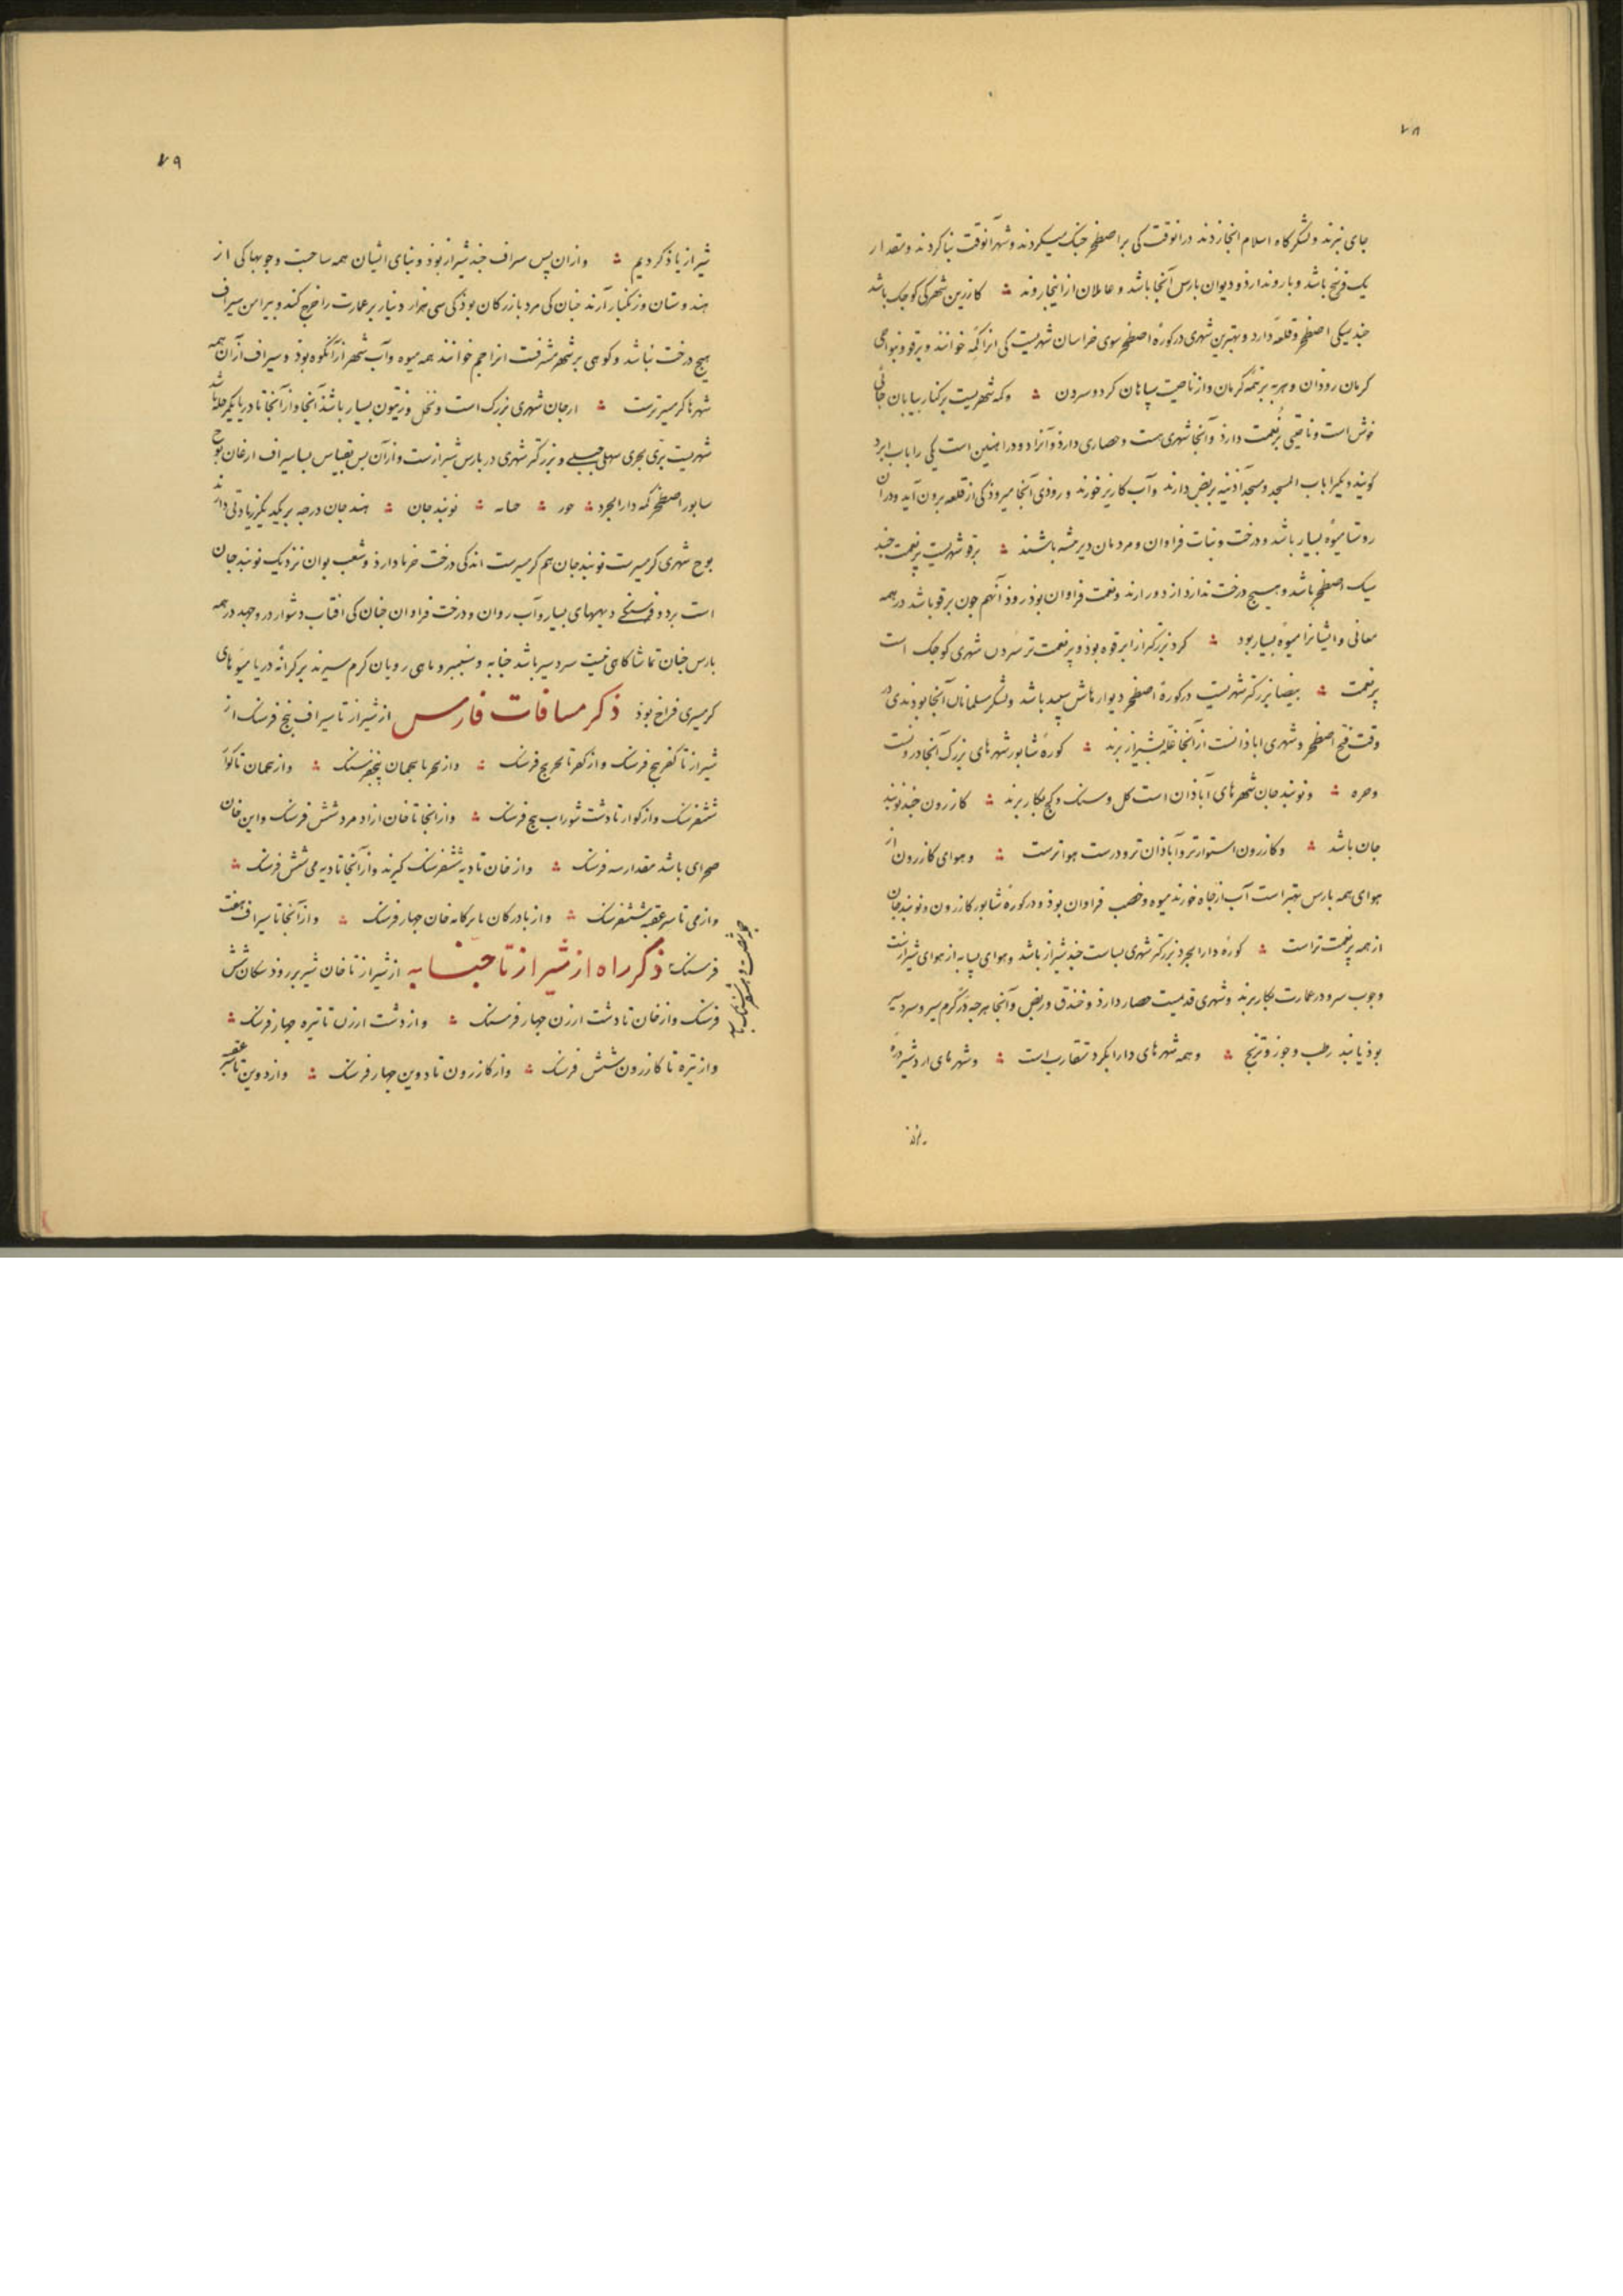 ۷۸
جای نبرند و لشکرگاه اسلام انجا زدند درانوقت کی بر اصطخر جنگ میکردند و شهر آنوقت بنا کردند و مقدار
یک فرسخ باشد و بارو ندارد و دیوان بارس آنجا باشد و عاملان از اینجا روند ؞ کازرین شهرکی کوچک باشد
چند یکی اصطخر و قلعهٔ دارد و بهترین شهری در کورهٔ اصطخر سوی خراسان شهریست کی انرا کثه خوانند و برقو و نواحی
کرمان روذان و هریه برثمه کرمان و از ناحیت سپاهان کرد و سردن ؞ وکثه شهریست بر کنار بیابان جائی
خوش است و ناحیتی پر نعمت دارذ و آنجا شهری هست و حصاری دارذ و آنرا دو در اهنین است یکی را باب ایزد
کویند و یکیرا باب المسجد و مسجد آذینه بربض دارند و آب کاریز خورند و روذی آنجا میروذ کی از قلعه برون آید و دران
روستا میوهٔ بسیار باشد و درخت و نبات فراوان و مردمان دیر باشند ؞ برقو شهریست پر نعمت چند
یک اصطخر باشد و هیچ درخت ندارد از دور ارند و نعمت فراوان بوذ روذ آنهم جون برقو باشد در همه
معانی و ایشانرا میوه بسیار بود ؞ کرد بزرکتر از ابرقوه بوذ و پر نعمت تر سردن شهری کوچک است
پر نعمت ؞ بیضا بزرکتر شهریست در کورهٔ اصطخر دیوارهاش سپید باشد و لشکر مسلمانان آنجا بودندی در
وقت فتح اصطخر و شهری اباذانست از آنجا غله بشیراز برند ؞ کورهٔ شابور شهرهای بزرک آنجا درونست
وحره ؞ و نوبندجان شهرهای آباذان است کل و سنک و کج بکار برند ؞ کازرون چند نوبند
جان باشد ؞ وکازرون استوارتر و آباذان تر و درست هواترست ؞ و هوای کازرون از
هوای همه بارس بهتر است آب از جاه خورند میوه و خصب فراوان بوذ و در کورهٔ شابور کازرون و نوبندجان
از همه پر نعمت تر است ؞ کورهٔ دارابجرد بزرکتر شهری بساست چند شیراز باشد و هوای بسا به از هوای شیرازست
وجوب سرو در عمارت بکار برند و شهری قدیمست حصار دارذ و خندق و ربض و آنجا هرجه در کرم سیر و سردسیر
بوذ یابند رطب و جوز و ترنج ؞ و همه شهرهای دارابکرد متقارب است ؞ و شهرهای اردشیر درهٔ
۷۹
شیراز یاذ کردیم ؞ وازان پس سراف چند شیراز بوذ و بنای ایشان همه ساجست و جوبها کی از
هندوستان و زنکبار آرند چنان کی مرد بازرکان بوذ کی سی هزار دینار بر عمارت را خرج کند و پیرامن سیراف
هیچ درخت نباشد و کوهی بر شهر مشرفست انرا جم خوانند همه میوه و آب شهر از آنکوه بوذ و سیراف از آن همه
شهرها کرمسیرترست ؞ ارجان شهری بزرک است و نخل و زیتون بسیار باشد آنجا و از آنجا تا دریا یکمرحله باشد
شهریست برّی بحری سهلی جبلی و بزرکتر شهری در بارس شیرازست و ازآن بس بقیاس بسا سیراف ارغان توج
سابور اصطخر کثه دارابجرد ؞ جور ؞ ؞ نوبندجان ؞ هندجان درجه بریکدیکر زیادتی دارند
توج شهری کرمسیرست نوبندجان هم کرمسیرست اندکی درخت خرما دارذ و شعب بوان نزدیک نوبندجان
است بر دو فرسنکی دیههای بسیار و آب روان و درخت فراوان چنان کی افتاب دشوار در و جهد در همه
بارس چنان تماشاگاهی نیست سردسیر باشد جنابه و سینیز و ماهی روبان کرم سیرند بر کرانهٔ دریا میوهای
کرمسیری فراخ بوذ ذکر مسافات فارس از شیراز تا سیراف پنج فرسنک از
شیراز تا کفر پنج فرسنک و از کفر تا بحر پنج فرسنک ؞ و از بحر تا بجمان پنجفرسنک ؞ و از بجمان تا کوار
ششفرسنک و از کوار تا دشت شوراب پنج فرسنک ؞ و از انجا تا خان ازاد مرد شش فرسنک و این خان
صحرای باشد مقدار سه فرسنک ؞ و از خان تا دیه ششفرسنک کیرند و از آنجا تا دیه می شش فرسنک ؞
وازمی تا سر عقبه ششفرسنک ؞ و از بادرکان تا برکانه خان جهار فرسنک ؞ و از آنجا تا سیراف هفت
فرسنک ذکر راه از شیراز تا جنابه از شیراز تا خان شیر بر روذ سکان شش
فرسنک و از خان تا دشت ارزن جهار فرسنک ؞ و از دشت ارزن تا تیره جهار فرسنک ؞
و از تیره تا کازرون شش فرسنک ؞ و از کازرون تا دوین جهار فرسنک ؞ و از دوین تا سر عقبه